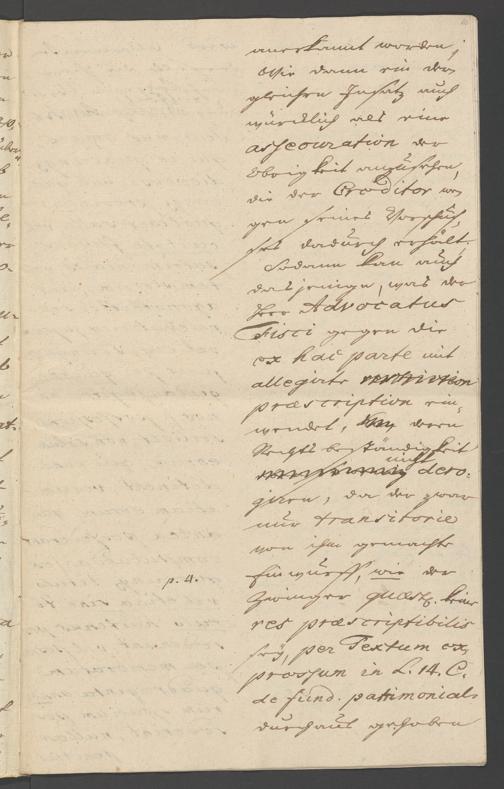 anerkannt worden;
Wie dann ein der-
gleichen Zusatz auch
würcklich als eine
assecuration der
Obrigkeit anzusehen,
die der Creditor we-
gen seines Vorschus-
ses dadurch erhält.
Sodann kan auch
dasjenige, was der
Herr Advocatus
Fisci gegen die
ex hac parte mit
allegirte
præscription ein-
wendet, deren
Rechts beständigkeit
nicht dero-
giren, da der zwar
nur transitorie
von ihm gemachte
Einwurff, wie der
p. 4.
Zwinger quæst. keine
res præscriptibilis
sey, per Textum ex-
pressum in L. 14. C.
de fund. patrimonial.
durchaus gehoben